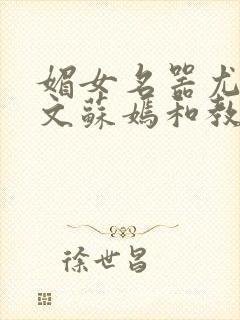 媚女名器尤
文蘇媽和教
徐世昌